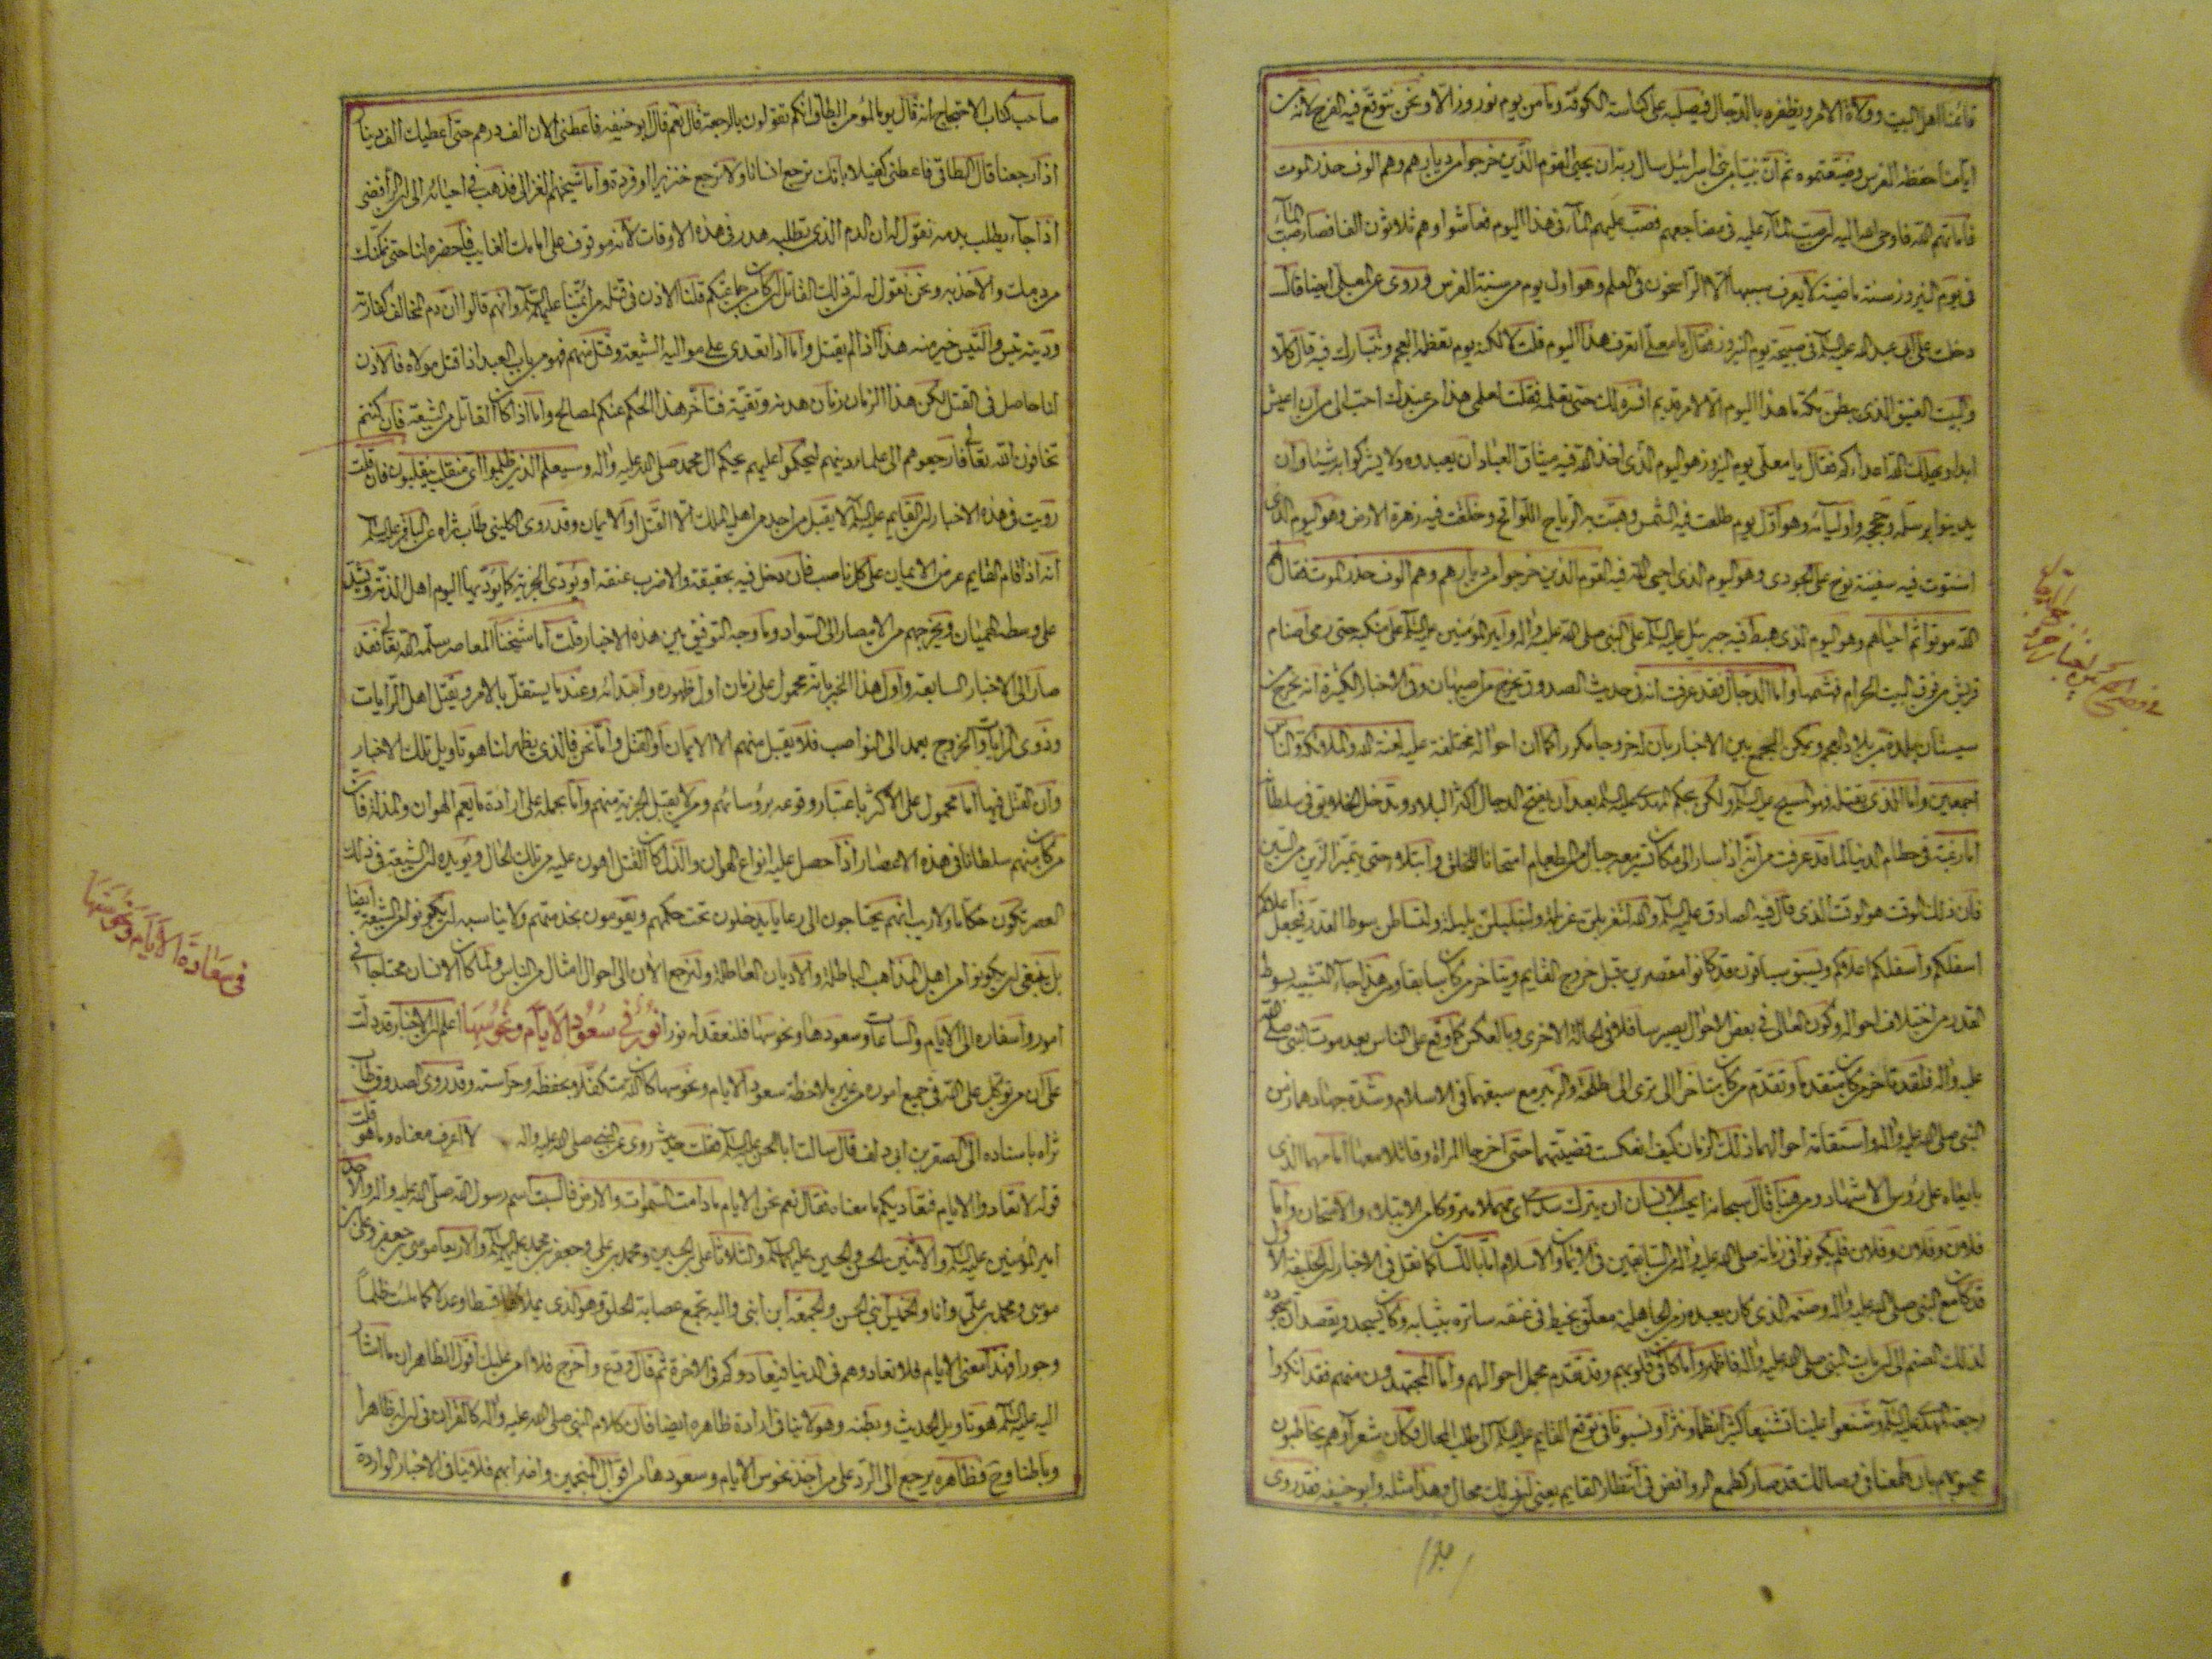 قائمنا اهل البيت وولاة الامر ويظفره بالدجال فيصلبه على كناسة الكوفة وما من يوم نوروز الا ونحن نتوقع فيه الفرج لانه من
ايامنا حفظه الفرس وضيعتموه ثم ان نبيا من بني اسرائيل سال ربه ان يحيي القوم الذين خرجوا من ديارهم وهم الوف حذر الموت
فاماتهم الله فاوحى الله اليه ان صب الماء عليه في مضاجعهم فصب عليهم الماء في هذا اليوم فعاشوا وهم ثلاثون الفا فصار صب الماء
في يوم النيروز سنة ماضية لا يعرف سببها الا الراسخون في العلم وهو اول يوم من سنة الفرس وروى عن المعلى ايضا قال
دخلت على ابي عبد الله عليه السلم في صبيحة يوم النيروز فقال يا معلى اتعرف هذا اليوم قلت لا لكنه يوم تعظمه العجم وتتبارك فيه قال كلا
والبيت العتيق الذي ببطن مكة ما هذا اليوم الا لامر قديم افسره لك حتى تعلمه فقلت لعلمي هذا من عندك احب الي من ان اعيش
ابدا ويهلك الله اعداءكم فقال يا معلى يوم النيروز هو اليوم الذي اخذ الله فيه ميثاق العباد ان يعبدوه ولا يشركوا به شيئا وان
يدينوا برسله وحججه واوليائه وهو اول يوم طلعت فيه الشمس وهبت به الرياح اللواقح وخلقت فيه زهرة الارض وهو اليوم الذي
استوت فيه سفينة نوح على الجودي وهو اليوم الذي احيى الله فيه القوم الذين خرجوا من ديارهم وهم الوف حذر الموت فقال لهم
الله موتوا ثم احياهم وهو اليوم الذي هبط فيه جبرئيل عليه السلم على النبي صلى الله عليه واله وامير المؤمنين عليه السلم على منكبه حتى رمى اصنام
قريش من فوق البيت الحرام فهشمها واما الدجال فقد عرفت انه في حديث الصدوق يخرج من اصبهان وفي الاخبار الكثيرة انه يخرج من
سيستان بلدة من بلاد العجم ويمكن الجمع بين الاخبار بان له خروجا مكررا كما ان احواله مختلفة عليه لعنة الله والملائكة والناس
اجمعين واما الذي يقتله فهو المسيح عليه السلم ولكن بحكم المهدي عليه السلم بعد ان يفتح الدجال اكثر البلاد ويدخل الخلايق في سلطانه
اما رغبة في حطام الدنيا لما قد عرفت من انه اذا سار الى مكان تسير معه جبال من الطعام امتحانا للخلق وابتلاء حتى يتميز الزين من الشين
فان ذلك الوقت هو الوقت الذي قال فيه الصادق عليه السلم والله لتغربلن غربلة ولتبلبلن بلبلة ولتساطن سوط القدر فيجعل اعلاكم
اسفلكم واسفلكم اعلاكم ويسبق سباقون قد كانوا مقصرين قبل خروج القايم ويتاخر من كان سابقا ومن هذا جاء التشبيه بسوط
القدر من اختلاف احواله وكون العالي في بعض الاحوال يصير سافلا في الحالة الاخرى وبالعكس كما وقع على الناس بعد موت النبي صلى الله
عليه واله فلقد تاخر من كان متقدما وتقدم من كان متاخرا الا ترى الى طلحة والزبير مع سبقهما في الاسلام وشدة جهادهما زمن
النبي صلى الله عليه واله واستقامة احوالهما ذلك الزمان كيف انعكست قضيتهما حتى اخرجا المراة وقاتلا معها امامهما الذي
بايعاه على رؤس الاشهاد ومن هنا قال سبحانه ايحسب الانسان ان يترك سدى اي مهملا متروكا من الابتلاء والامتحان واما
فلان وفلان وفلان فلم يكونوا في زمانه صلى الله عليه واله من السابقين في الايمان والاسلام اما باللسان كما نقل في الاخبار ان الخليفة الاول
قد كان مع النبي صلى الله عليه واله وصنمه الذي كان يعبده زمن الجاهلية معلق بخيط في عنقه ساتره بثيابه وكان يسجد ويقصد ان سجوده
لذلك الصنم الى ان مات النبي صلى الله عليه واله فاظهروا ما كان في قلوبهم وقد تقدم مجمل احوالهم واما المجتهدون منهم فقد انكروا
رجعة المهدي عليه السلم وشنعوا علينا تشنيعا كثيرا نظما ونثرا ونسبونا في توقع القايم عليه السلم الى طلب المحال فكان شعراؤهم يخاطبون
محبوبهم بان طمعنا في وصالك قد صار كطمع الروافض في انتظار القايم يعني ان ذلك محال وهذا مثله وابو حنيفة فقد روى
صاحب كتاب الاحتجاج انه قال يوما لمؤمن الطاق انكم تقولون بالرجعة قال نعم قال ابو حنيفة فاعطني الان الف درهم حتى اعطيك الف دينار
اذا رجعنا قال الطاقي فاعطني كفيلا بانك ترجع انسانا ولا ترجع خنزيرا او قردة واما شيخهم الغزالي فذهب في احيائه الى ان الرافضي
اذا جاء يطلب بدمه نقول له ان الدم الذي تطلبه هدر في هذه الاوقات لانه موقوف على امامك الغايب فاحضره لنا حتى نمكنك
من دمك والاخذ به ونحن نقول له ان ذلك القاتل ان كان من جماعتكم قلنا الاذن في قتله من ائمتنا عليهم السلم وانهم قالوا ان دم المخالف كفارته
وديته تيس والتيس خير منه هذا اذا لم يقتل واما اذا تعدى على مواليه الشيعة وقتل منهم فهو من باب العبد اذا قتل مولاه فالاذن
لنا حاصل في القتل لكن هذا الزمان زمان هدنة وتقية فتاخر هذا الحكم عنكم لمصالح واما اذا كان القاتل من الشيعة فان كنتم
تخافون الله تعالى فارجعوهم الى علماء دينهم ليحكموا عليهم بحكم ال محمد صلى الله عليه واله وسيعلم الذين ظلموا اي منقلب ينقلبون فان قلت
رويت في هذه الاخبار ان القايم عليه السلم لا يقبل من احد من اهل الملل الا القتل او الايمان وقد روى الكليني طاب ثراه عن الباقر عليه السلم
انه اذا قام القايم عرض الايمان على كل ناصب فان دخل فيه بحقيقة والا ضرب عنقه او يؤدي الجزية كما يؤديها اليوم اهل الذمة ويشد
على وسطه الهميان ويخرجهم من الامصار الى السواد وما وجه التوفيق بين هذه الاخبار قلت اما شيخنا المعاصر سلمه الله تعالى فقد
صار الى الاخبار السابقة واول هذا الخبر بانه محمول على زمان اول ظهوره وابتدائه وعند ما يستقل بالامر ويقتل اهل الرايات
وذوي الرايات والخروج يعمد الى النواصب فلا يقبل منهم الا الايمان او القتل واما نحن فالذي يظهر لنا هو تاويل تلك الاخبار
وان القتل فيها اما محمول على الاكثر باعتبار وقوعه برؤسائهم ومن لا يقبل الجزية منهم واما بحمله على ارادة ما يعم الهوان والمذلة فان
من كان منهم سلطانا في هذه الاعصار اذا حصل عليه انواع الهوان والذل كان القتل اهون عليه من تلك الحال ويؤيده ان الشيعة في ذلك
العصر تكون حكاما ولا ريب انهم يحتاجون الى رعايا يدخلون تحت حكمهم ويقومون بخدمتهم ولا يناسبه ان يكونوا من الشيعة ايضا
بل ينبغي ان يكونوا من اهل المذاهب الباطلة والاديان العاطلة ولنرجع الان الى احوال امثال من الناس ولما كان الانسان محتاجا في
اموره واسفاره الى الايام والساعات وسعودها ونحوسها فلنعقد له نورا نور في سعود الايام ونحوسها اعلم ان الاخبار قد دلت
على ان من توكل على الله في جميع اموره من غير ملاحظة سعود الايام ونحوسها كان الله متكفلا بحفظه وحراسته وقد روى الصدوق طاب
ثراه باسناده الى الصقر بن ابي دلف قال سالت ابا الحسن عليه السلم فقلت حديث روى عن النبي صلى الله عليه واله لا اعرف معناه وما هو قلت
قوله لا تعادوا الايام فتعاديكم ما معناه فقال نعم نحن الايام ما دامت السموات والارض فالسبت اسم رسول الله صلى الله عليه واله والاحد
امير المؤمنين عليه السلم والاثنين الحسن والحسين عليهما السلم والثلاثا علي بن الحسين ومحمد بن علي وجعفر بن محمد عليهم السلم والاربعا موسى بن جعفر وعلي بن
موسى ومحمد بن علي وانا والخميس ابني الحسن والجمعة ابن ابني واليه تجمع عصابة الحق وهو الذي يملاها قسطا وعدلا كما ملئت ظلما
وجورا فهذا معنى الايام فلا تعادوهم في الدنيا فيعادوكم في الاخرة ثم قال ودع واخرج فلا امن عليك اقول الظاهر ان ما اشار
اليه عليه السلم هو تاويل الحديث وبطنه وهو لا ينافي ارادة ظاهره ايضا فان كلام النبي صلى الله عليه واله كالقران في ان له ظاهرا
وباطنا وح فظاهره يرجع الى الرد على من اخذ نحوس الايام وسعودها من اقوال المنجمين وافترائهم فلا ينافي الاخبار الواردة
في سعادة الايام ونحوستها